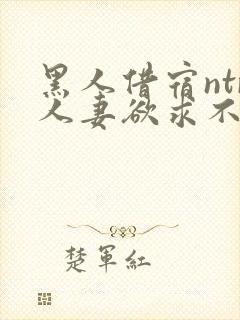 黑人借宿ntr
人妻欲求不
楚軍紅